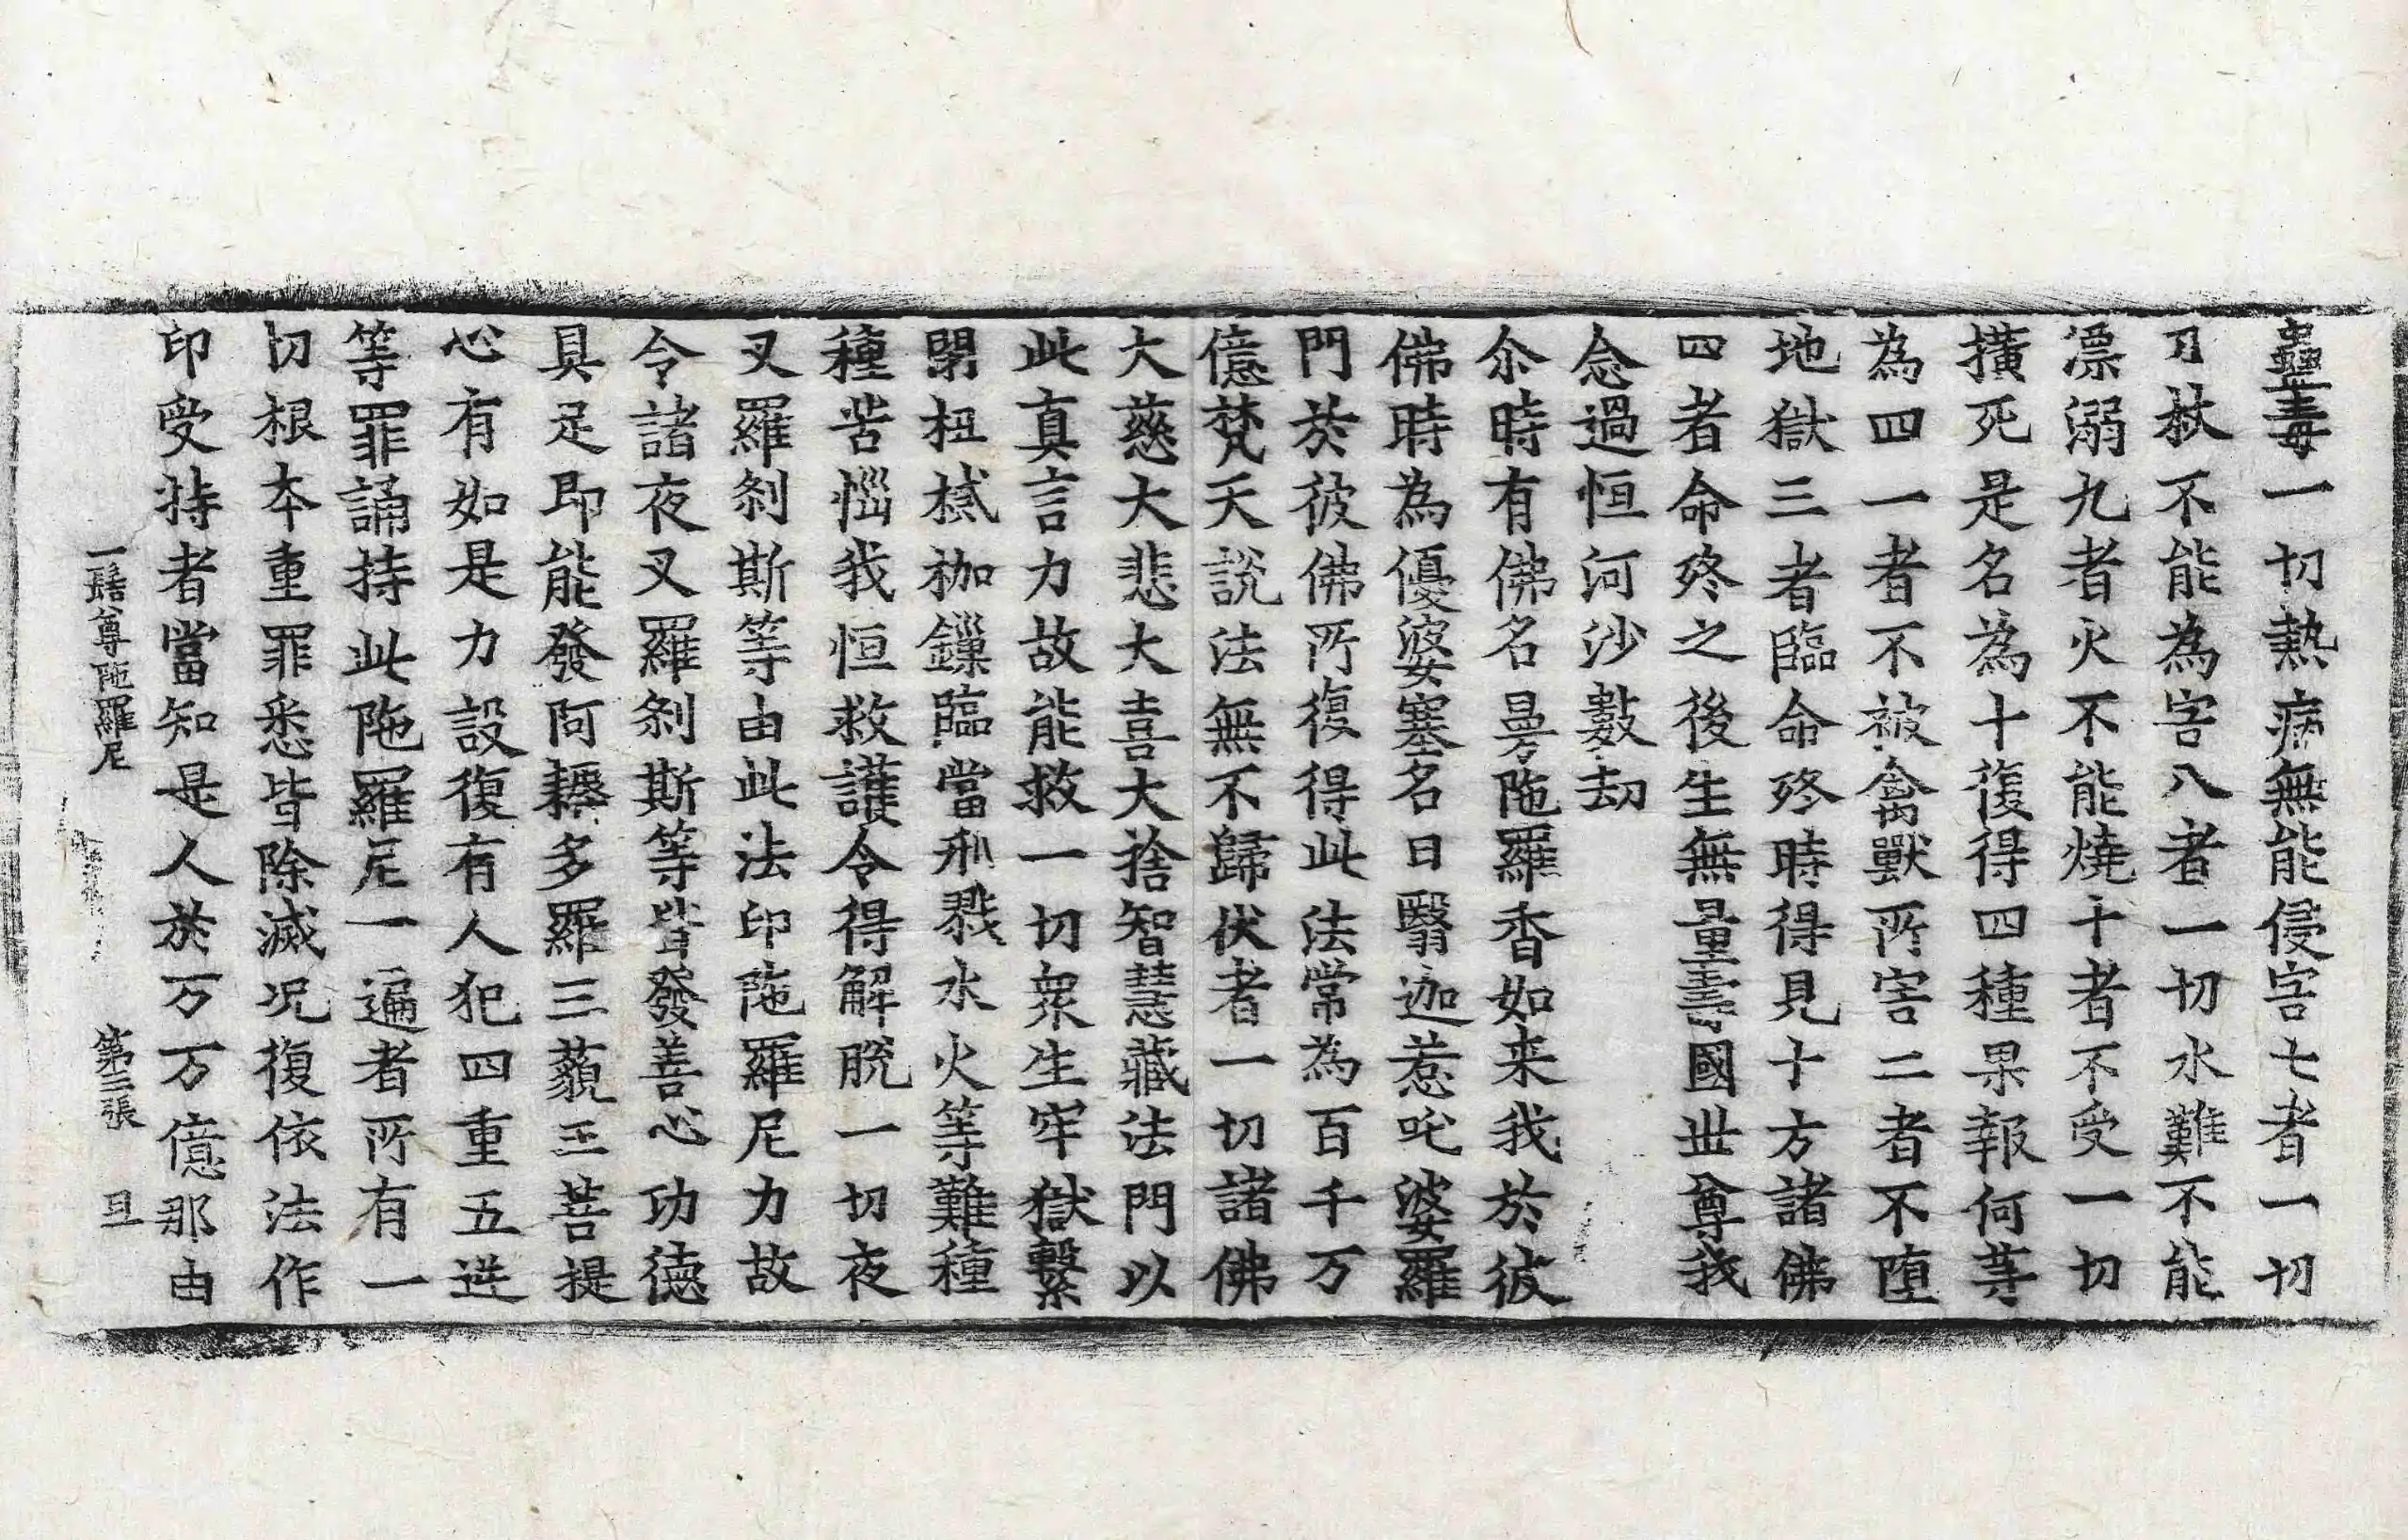 蠱毒一切熱病無能侵害七者一切
刀杖不能為害八者一切水難不能
漂溺九者火不能燒十者不受一切
撗死是名為十復得四種果報何䓁
為四一者不被禽獸所害二者不墮
地獄三者臨命終時得見十方諸佛
四者命終之後生無量壽國世尊我
念過恒河沙數劫
尒時有佛名曼陁羅香如来我於彼
佛時為優婆塞名曰翳迦惹吒婆羅
門於彼佛所復得此法常為百千万
億梵天說法無不歸伏者一切諸佛
大慈大悲大喜大捨智慧藏法門以
此真言力故能救一切衆生牢獄繫
閉杻械枷鏁臨當刑戮水火等難種
種苦惱我恒救護令得解脫一切夜
叉羅剎斯等由此法印陁羅尼力故
令諸夜叉羅剎斯等皆發善心功德
具足即能發阿耨多羅三藐三菩提
心有如是力設復有人犯四重五逆
等罪誦持此陁羅尼一遍者所有一
切根本重罪悉皆除滅況復依法作
印受持者當知是人於万万億那由
一髻尊陁羅尼 第三張 旦